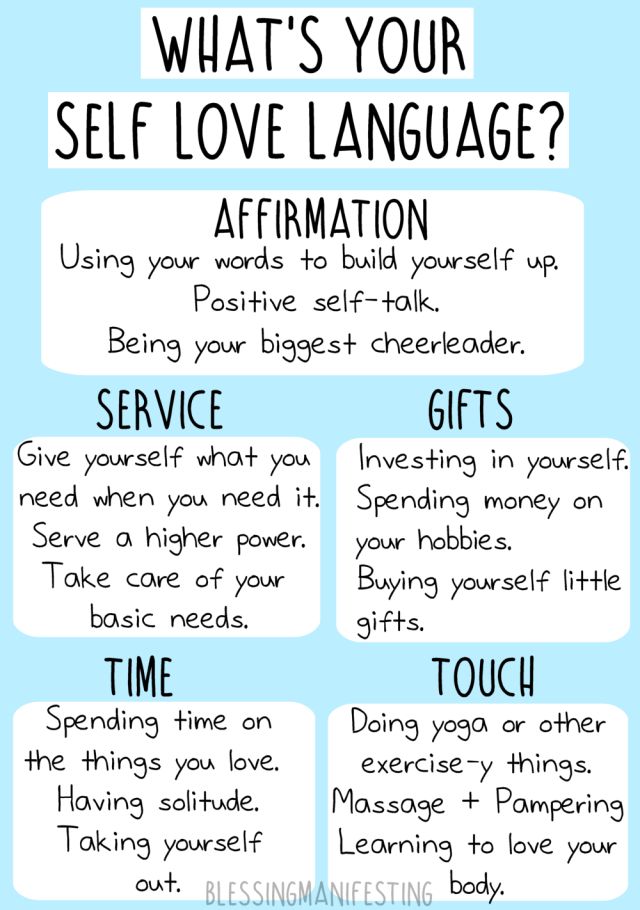 WHAT'S YOUR
SELF LOVE LANGUAGE?
AFFIRMATION
Using your words to build yourself up.
Positive self-talk.
Being your biggest cheerleader.
SERVICE
Give yourself what you
need when you need it.
Serve a higher power.
Take care of your
basic needs.
GIFTS
Investing in yourself.
Spending money on
your hobbies.
Buying yourself little
gifts.
TIME
Spending time on
the things you love.
Having solitude.
Taking yourself
out.
TOUCH
Doing yoga or other
exercise-y things.
Massage + Pampering
Learning to love your
body.
BLESSINGMANIFESTING